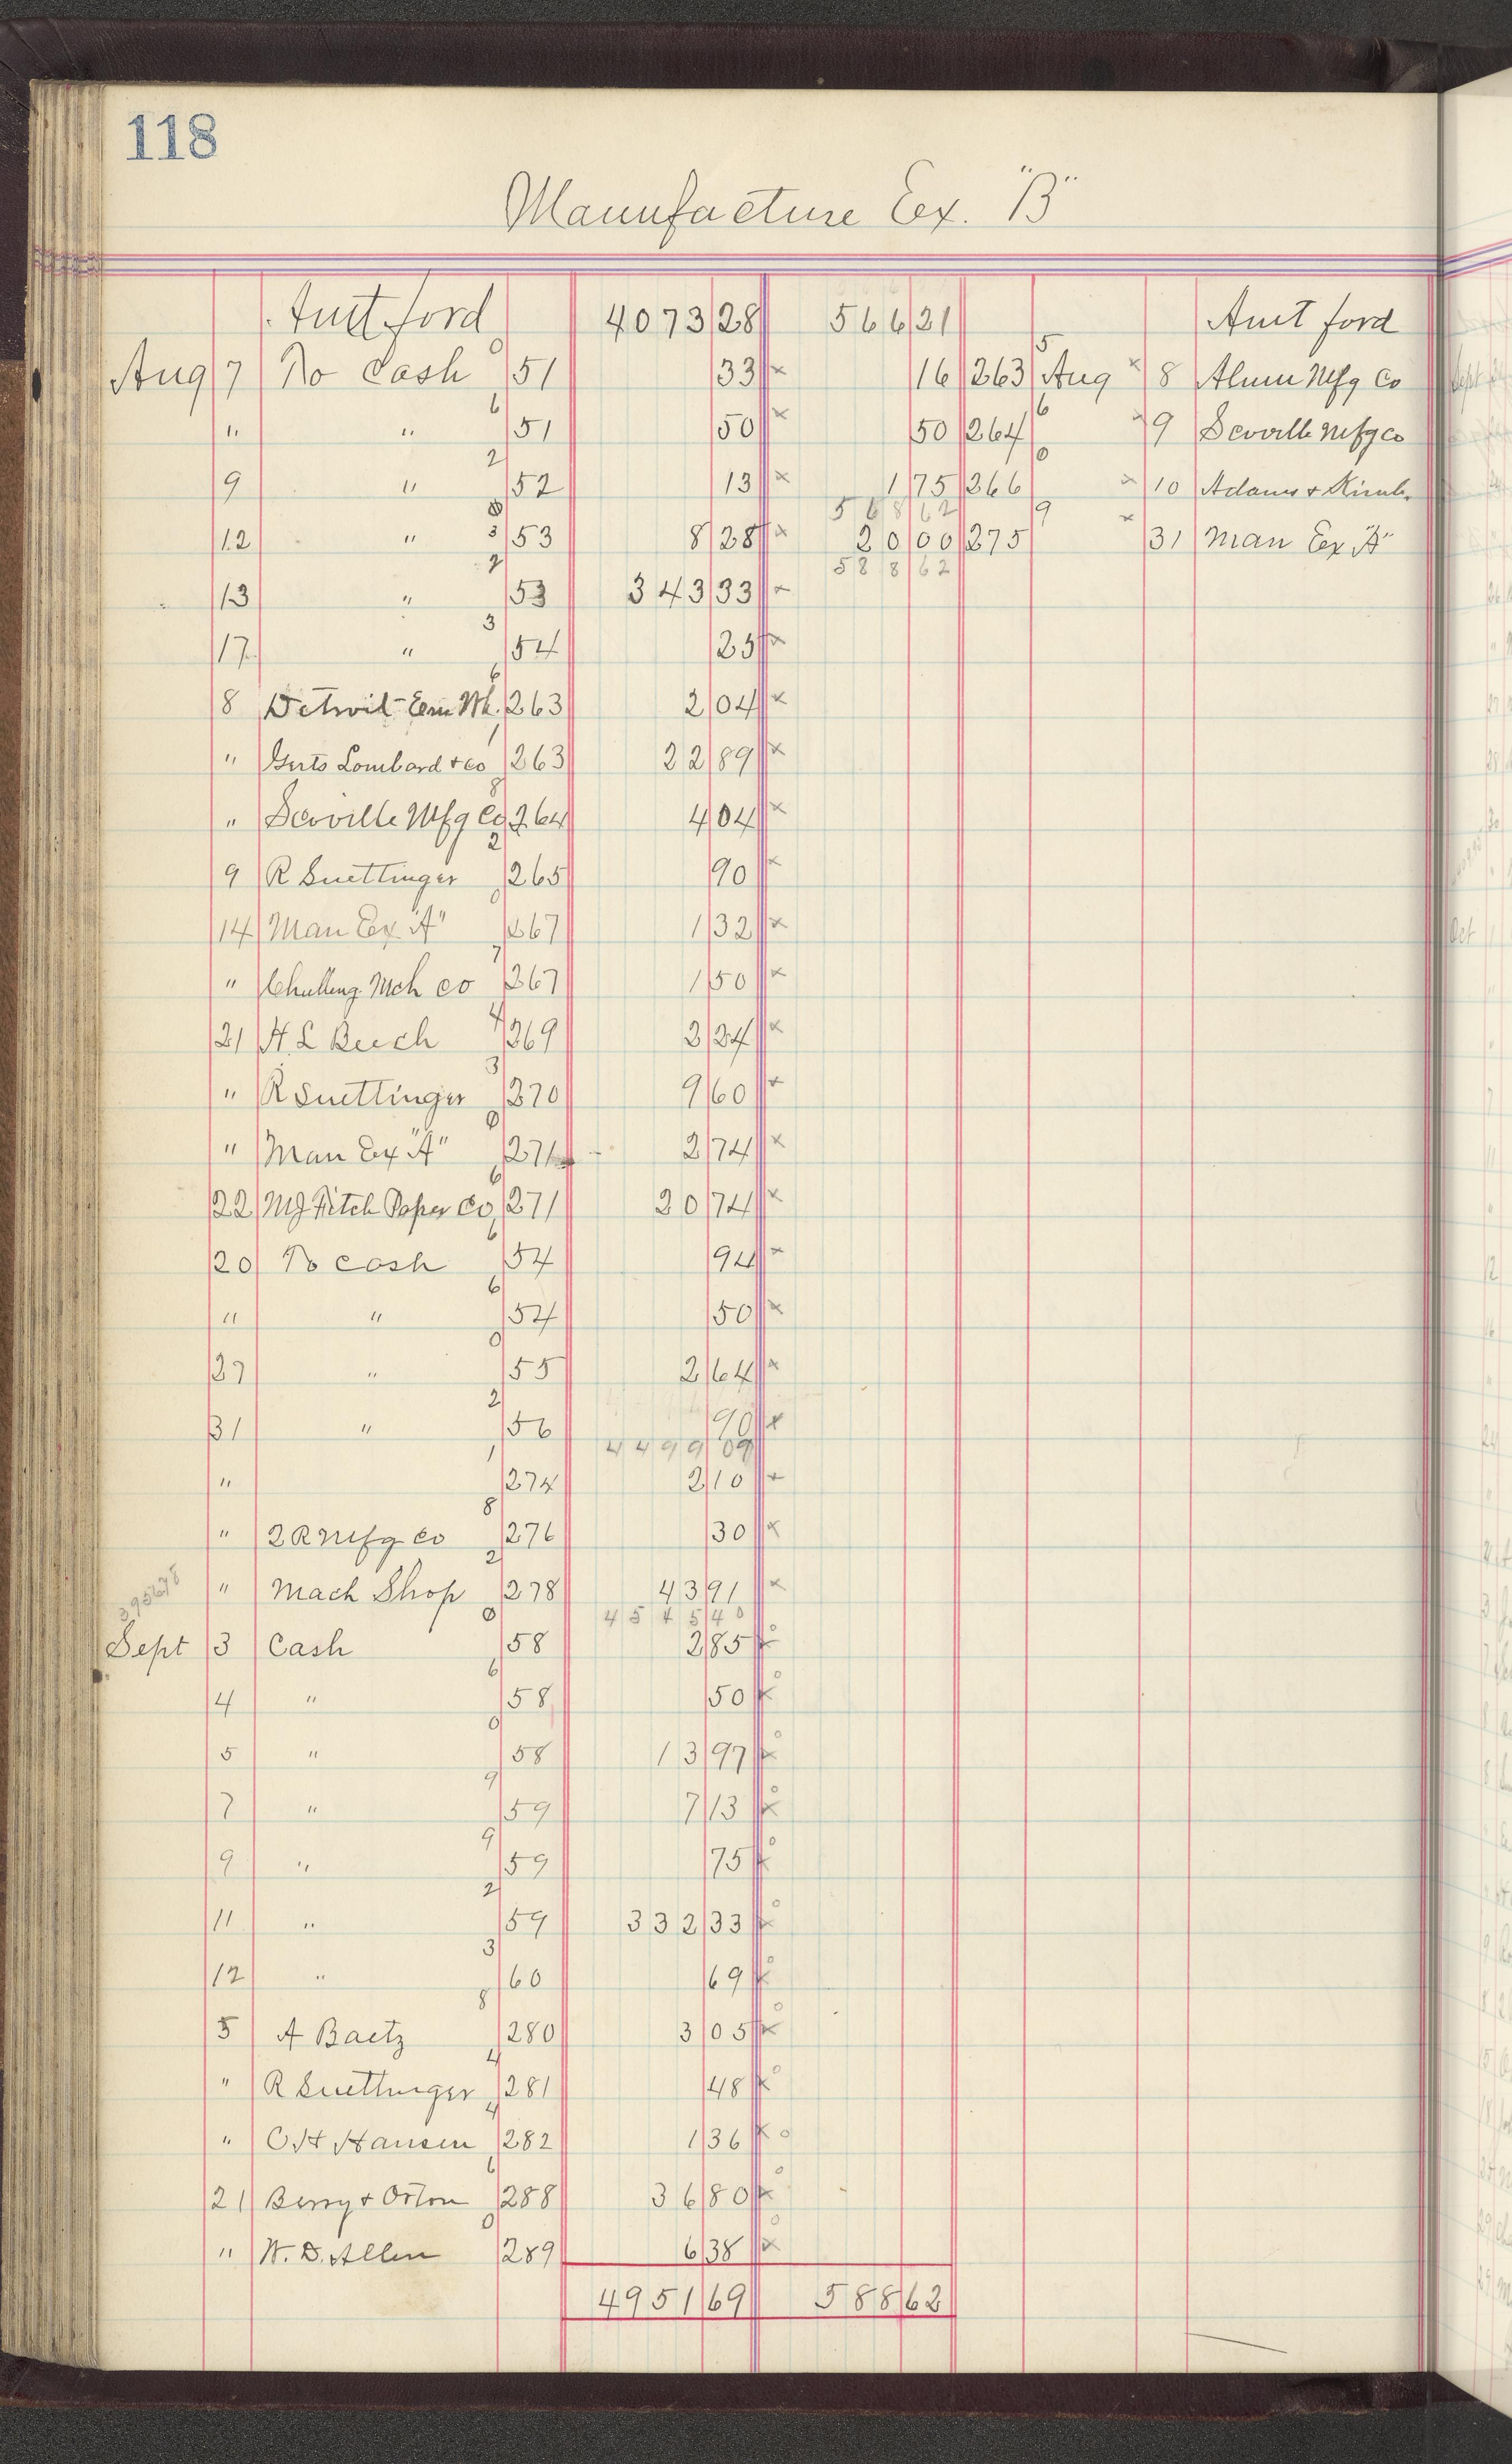 118
Manufacture Ex. "B"
Amt ford 4073 28 566 21 Amt ford
Aug 7 To Cash 0 51 33 x 16 263 5 Aug x 8 Alum Mfg Co
" " 6 51 50 x 50 264 6 x 9 Scoville Mfg Co
9 " 2 52 13 x 1 75 266 0 x 10 Adams &
568 62
12 " 3 53 8 28 x 20 00 275 9 x 31 Man Ex "A"
588 62
13 " 2 53 343 33 x
17 " 3 54 25 x
8 Detroit 6 263 2 04 x
" Gerts Lombard & Co 1 263 22 89 x
" Scoville Mfg Co 8 264 4 04 x
9 R Suettinger 2 265 90 x
14 Man Ex "A" 0 267 1 32 x
" Challeng Mch Co 7 267 1 50 x
21 H. L Beech 4 269 2 24 x
" R Suettinger 3 270 9 60 x
" Man Ex "A" 0 271 2 74 x
22 MJ Fitch Paper Co 6 271 20 74 x
20 To cash 6 54 94 x
" " 6 54 50 x
27 " 0 55 2 64 x
31 " 2 56 90 x
4499 09
" 1 274 2 10 x
" 2 R Mfg Co 8 276 30 x
" Mach Shop 2 278 43 91 x
4545 40
Sept 3 Cash 0 58 2 85 x
4 " 6 58 50 x
5 " 0 58 13 97 x
7 " 9 59 7 13 x
9 " 9 59 75 x
11 " 2 59 332 33 x
12 " 3 60 69 x
5 A Baetz 8 280 3 05 x
" R Suettinger 4 281 48 x
" C H Hansen 4 282 1 36 x
21 Berry & Orton 6 288 36 80 x
" W. D. Allen 0 289 6 38 x
4951 69 588 62